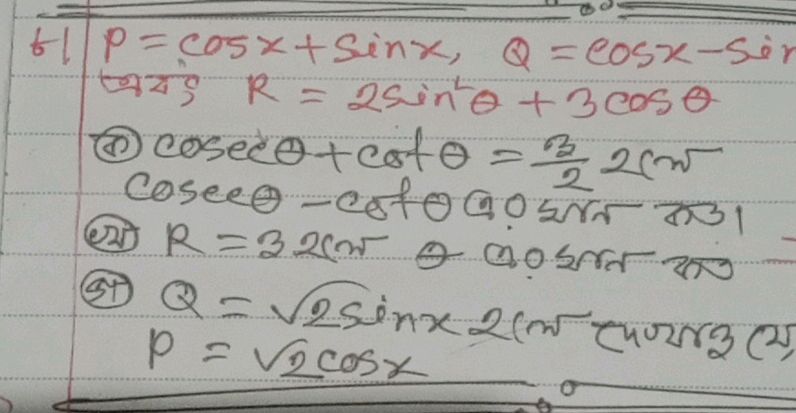 ৮। P = cosx + sinx, Q = cosx - sin
এবং R = 2sin²θ + 3cosθ
ক) cosecθ + cotθ = 3/2 হলে
cosecθ - cotθ এর মান কত।
খ) R = 3 হলে θ এর মান কত
গ) Q = √2sinx হলে দেখাও যে,
P = √2cosx